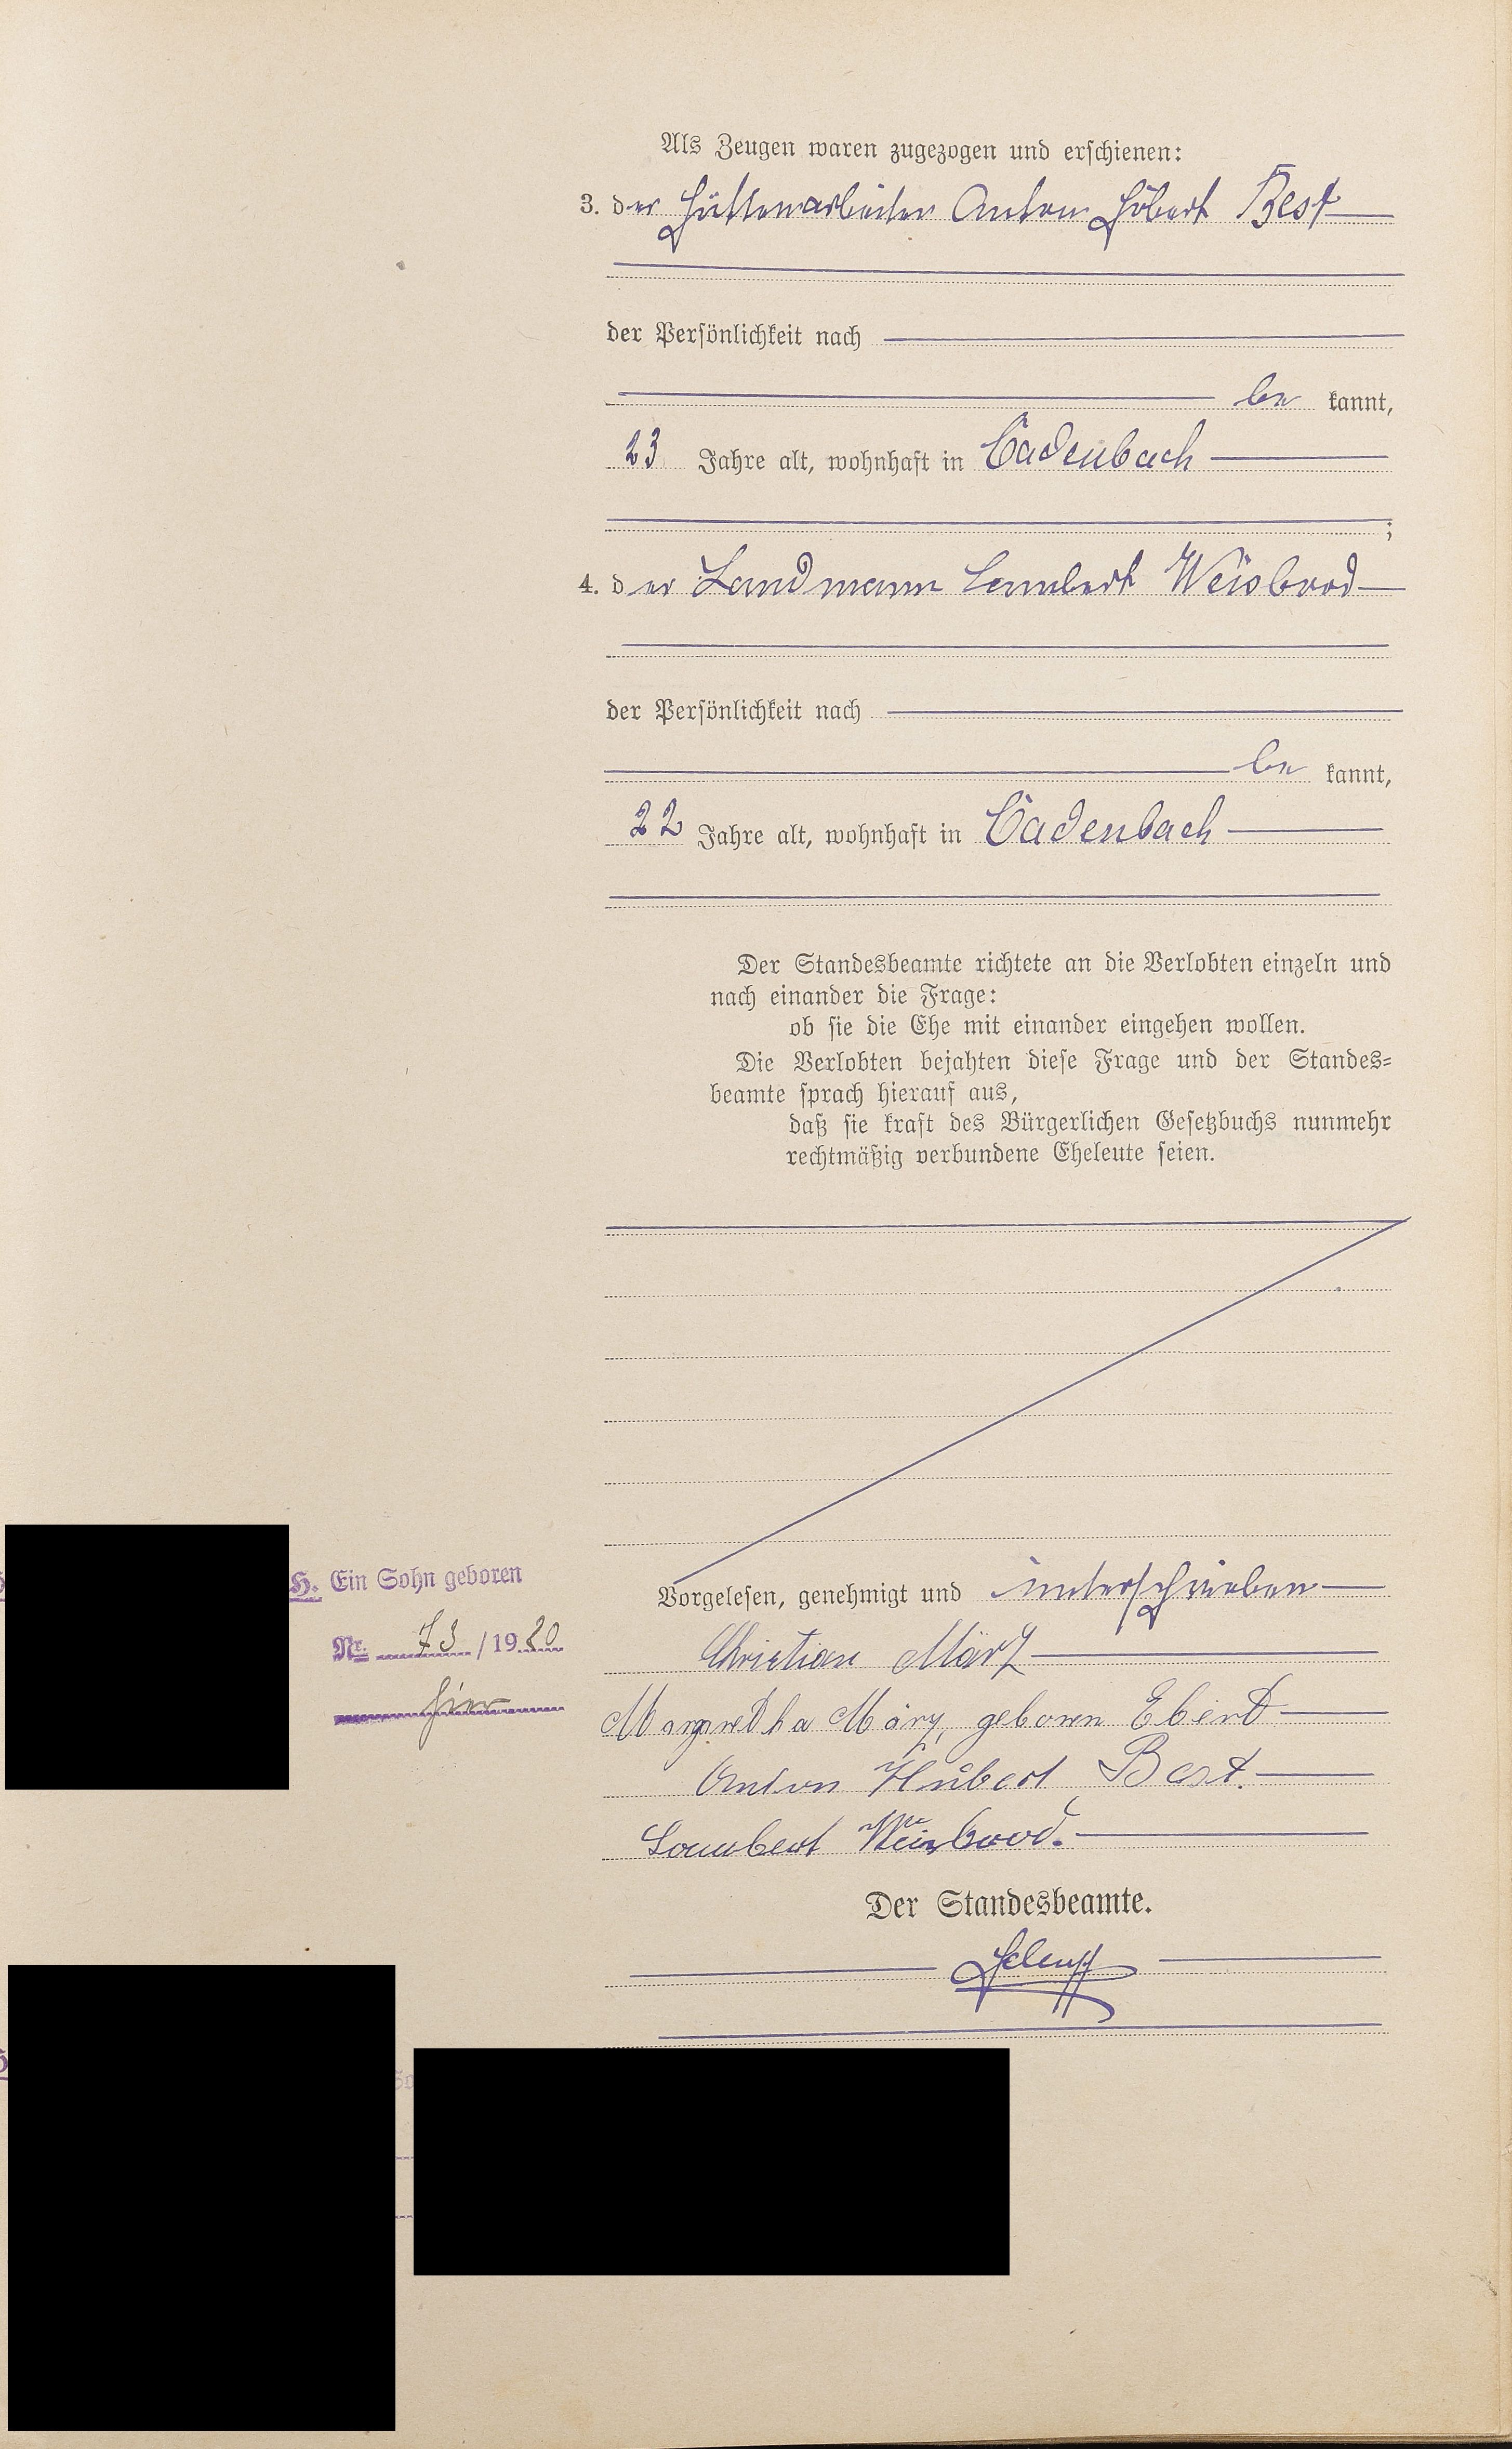 Als Zeugen waren zugezogen und erschienen:
3. der Hüttenarbeiter Anton Hübert Best
der Persönlichkeit nach
be kannt,
23 Jahre alt, wohnhaft in Cadenbach
;
4. der Landmann Lambert Weisbrod
der Persönlichkeit nach
be kannt,
22 Jahre alt, wohnhaft in Cadenbach
Der Standesbeamte richtete an die Verlobten einzeln und
nach einander die Frage:
ob sie die Ehe mit einander eingehen wollen.
Die Verlobten bejahten diese Frage und der Standes-
beamte sprach hierauf aus,
daß sie kraft des Bürgerlichen Gesetzbuchs nunmehr
rechtmäßig verbundene Eheleute seien.
H. Ein Sohn geboren
Nr. 73 / 1920
hier
Vorgelesen, genehmigt und unterschrieben
Christian März
Margaretha März, geboren Ebert
Anton Hubert Best.
Lambert Weisbrod.
Der Standesbeamte.